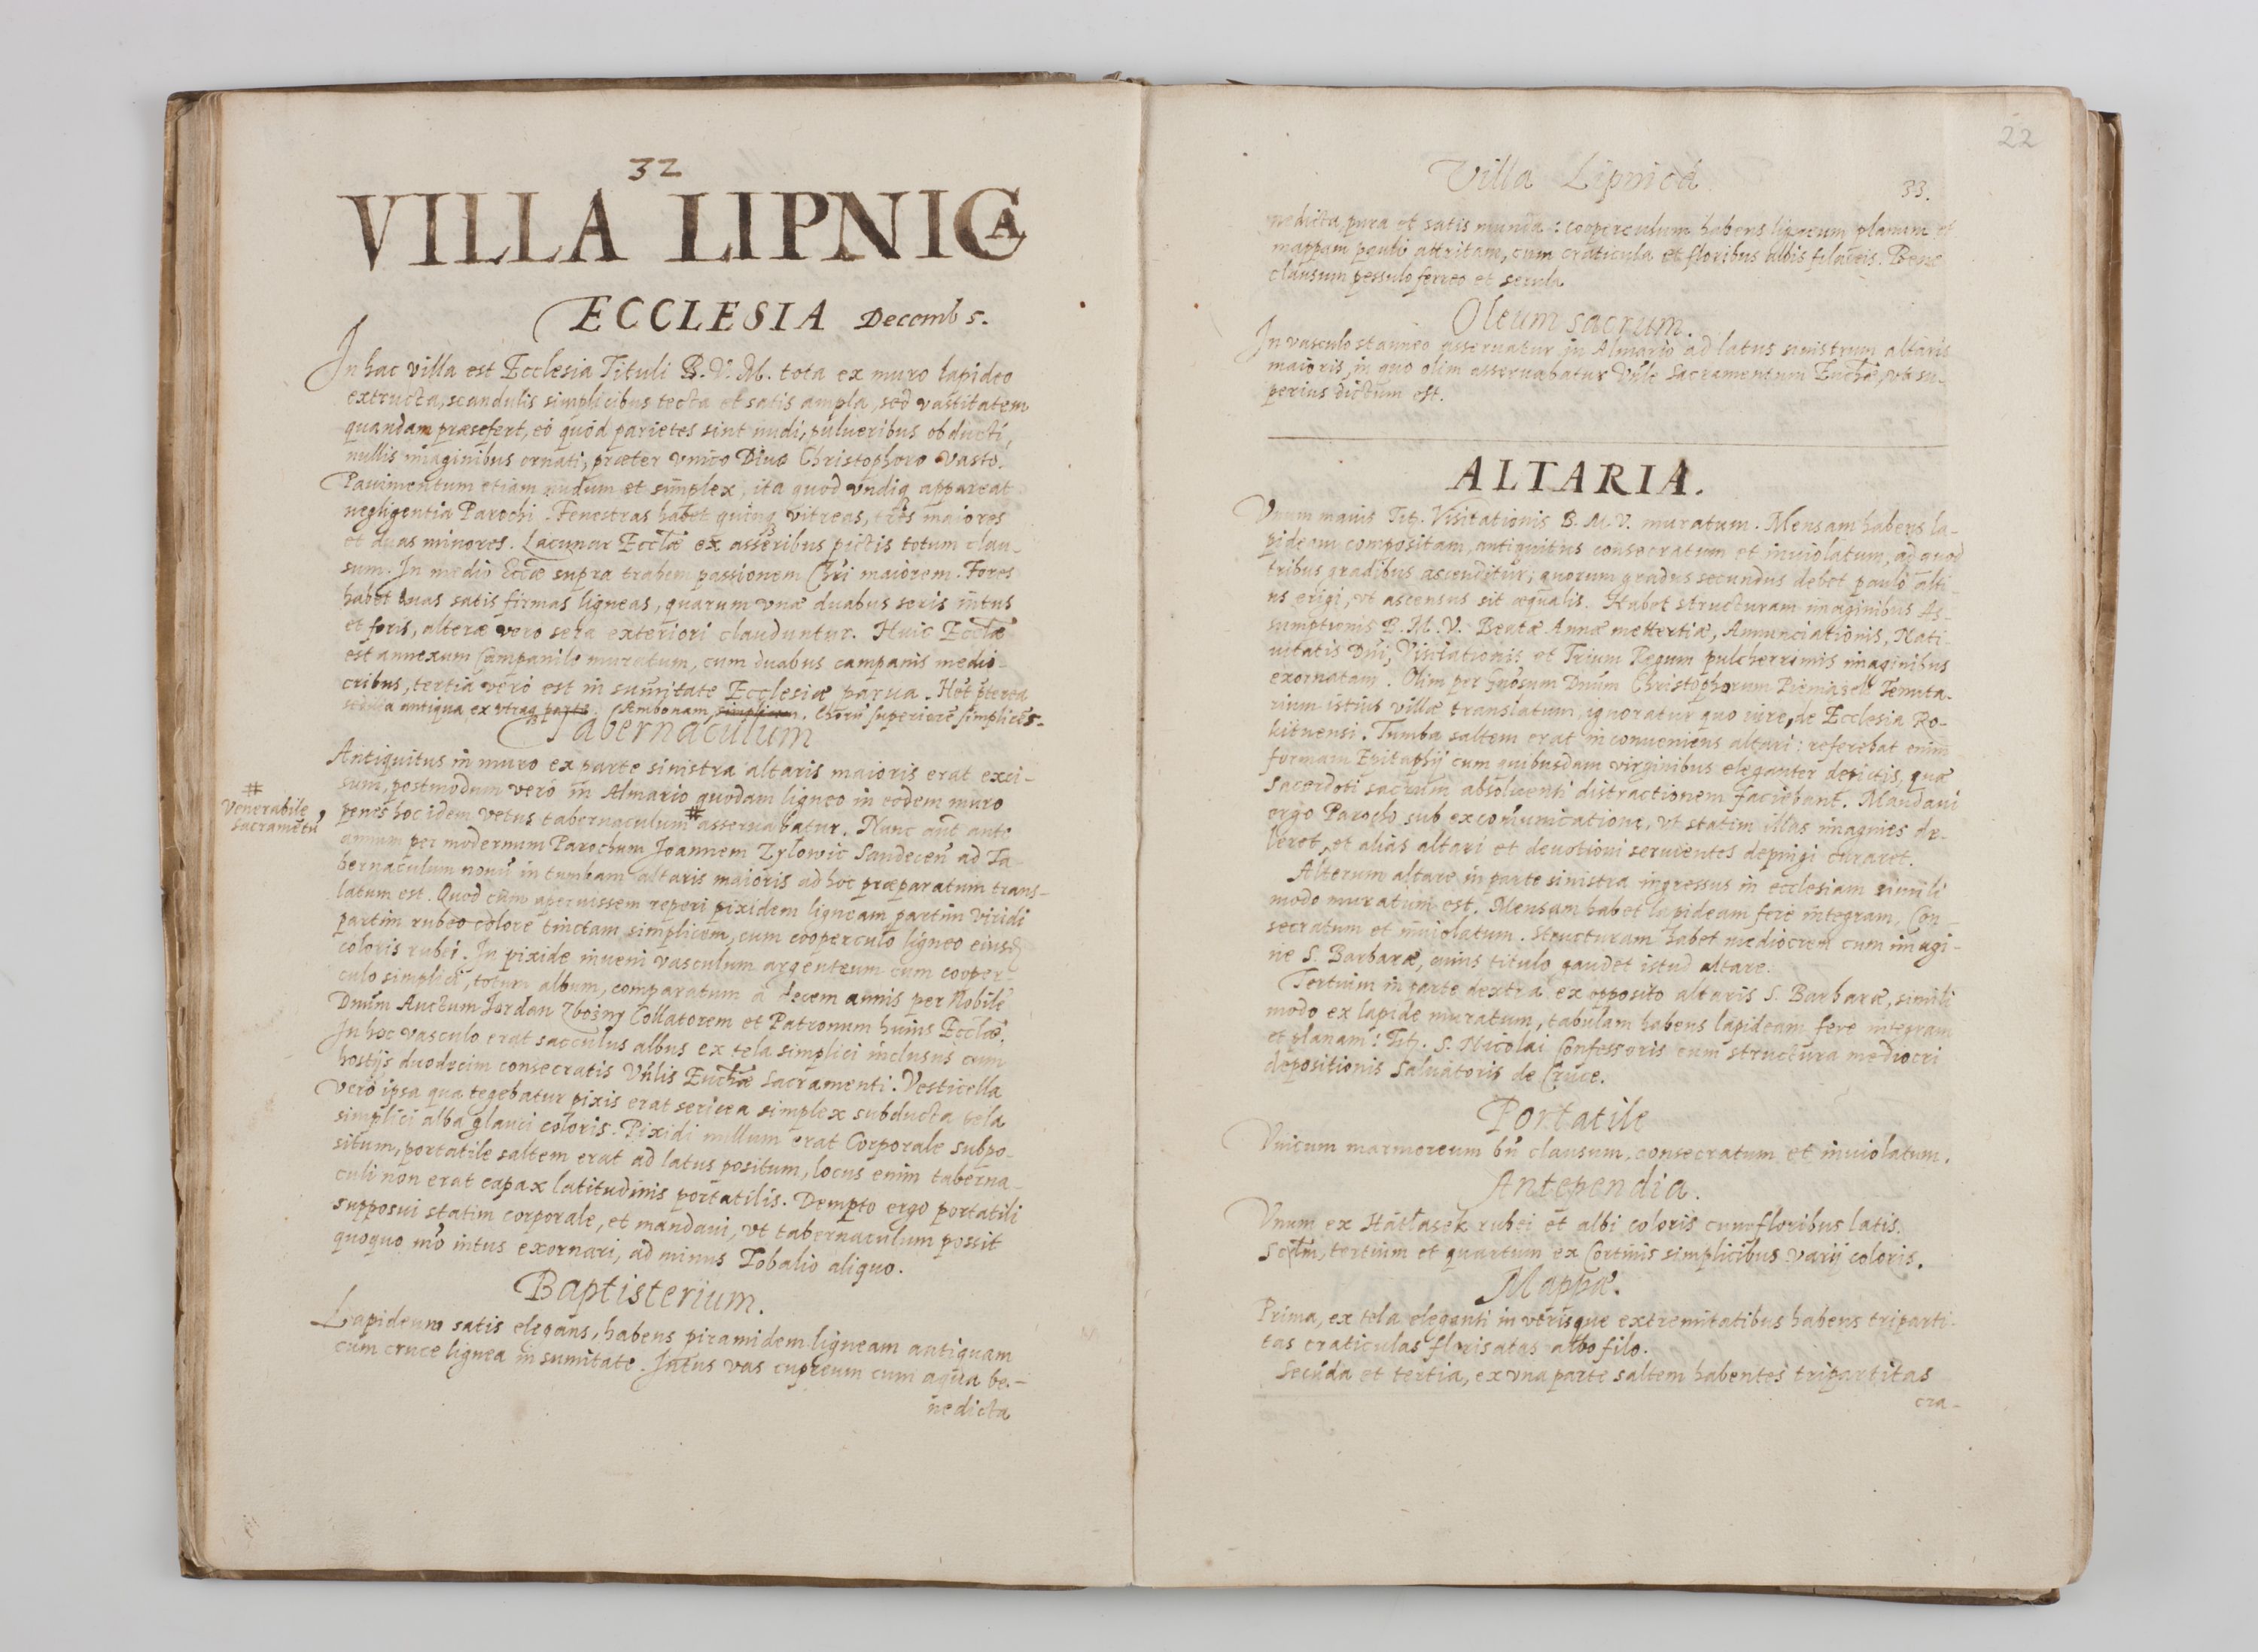 32
VILLA LIPNICA
ECCLESIA Decemb 5.
In hac villa est Ecclesia Tituli B. V. M. tota ex muro lapideo
extructa, scandulis simplicibus tecta et satis ampla, sed vastitatem
quandam præsefert, eò quòd parietes sint nudi, pulueribus obducti,
nullis imaginibus ornati, præter vnico Diuo Christophoro vasto.
Pauimentum etiam nudum et simplex, ita quod vndiq appareat
negligentia Parochi. Fenestras habet quinq vitreas, tres maiores
et duas minores. Lacunar Ecclæ ex asseribus pictis totum clau-
sum. In medio Eccæ supra trabem passionem Chri maiorem. Fores
habet duas satis firmas ligneas, quarum vnæ duabus seris intus
et foris, alteræ vero sera exteriori clauduntur. Huic Ecclæ
est annexum Campanile muratum, cum duabus campanis medio-
cribus, tertia verò est in sumitate Ecclesiæ parua. Het pterea
sedilia antiqua ex vtraq parte. Ambonam simplicem. Chorū superiorē simplicē
Tabernaculum
Antiquitus in muro ex parte sinistra altaris maioris erat exci-
sum, postmodum verò in Almario quodam ligneo in eodem muro
penes hoc idem vetus tabernaculum # asseruabatur. Nunc aut ante
# Venerabile
Sacrametū
annum per modernum Parochum Joannem Zylowic Sandecen ad Ta-
bernaculum nouū in tumbam altaris maioris ad hoc præparatum trans-
latum est. Quod cùm aperuissem reperi pixidem ligneam partim viridi
partim rubeo colore tinctam simplicem, cum cooperculo ligneo eiusd
coloris rubei. In pixide inueni vasculum argenteum cum cooper-
culo simplici, totum album, comparatum à decem annis per Nobilē
Dnūm Auctum Jordan Zbosny Collatorem et Patronum huius Ecclæ.
In hoc vasculo erat sacculus albus ex tela simplici inclusus cum
hostijs duodecim consecratis Vnlis Euchæ Sacramenti. Vesticella
verò ipsa qua tegebatur pixis erat sericea simplex subducta tela
simplici alba glauci coloris. Pixidi nullum erat Corporale subpo-
situm, portatile saltem erat ad latus positum, locus enim taberna-
culi non erat capax latitudinis portatilis. Dempto ergo portatili
supposui statim corporale, et mandaui, vt tabernaculum possit
quoquo mō intus exornari, ad minus Tobalio aliquo.
Baptisterium.
Lapideum satis elegans, habens piramidem ligneam antiquam
cum cruce lignea in sumitate. Intus vas cupreum cum aqua be-
nedicta
22
Villa Lipnica 33.
nedicta, pura et satis munda: cooperculum habens ligneum planum et
mappam paulò attritam, cum craticula et floribus albis filaceis. Bene
clausum pessulo ferreo et serula.
Oleum sacrum.
In vasculo stanneo asseruatur in Almario ad latus sinistrum altaris
maioris, in quo olim asseruabatur Vnle Sacramentum Euchæ, vt su-
perius dictum est.
ALTARIA.
Vnum maius Tit. Visitationis B. M. V. muratum. Mensam habens la-
pideam compositam, antiquitus consecratum et inuiolatum, ad quod
tribus gradibus ascenditur; quorum gradus secundus debet paulò alti-
us erigi, vt ascensus sit æqualis. Habet structuram imaginibus As-
sumptionis B. M. V. Beatæ Annæ mettertiæ, Annunciationis, Nati-
uitatis Dni, Visitationis et Trium Regum pulcherrimis imaginibus
exornatam. Olim per Gnosum Dnum Christophorum Pieniazek Tenuta-
rium istius villæ translatum, ignoratur quo iure, de Ecclesia Ro-
kitnensi. Tumba saltem erat inconueniens altari: referebat enim
formam Epitaphij cum quibusdam virginibus eleganter depictis, quæ
Sacerdoti sacrum absoluenti distractionem faciebant. Mandaui
ergo Parocho sub excomunicatione, vt statim illas imagines de-
leret, et aliàs altari et deuotioni seruientes depingi curaret.
Alterum altare in parte sinistra ingressus in ecclesiam simili
modo muratum est. Mensam habet lapideam fere integram, Con-
secratum et inuiolatum. Structuram habet mediocrem cum imagi-
ne S. Barbaræ, cuius titulo gaudet istud altare.
Tertium in parte dextra ex opposito altaris S. Barbaræ, simili
modo ex lapide muratum, tabulam habens lapideam fere integram
et planam: Tit. S. Nicolai Confessoris cum structura mediocri
depositionis Saluatoris de Cruce.
Portatile
Vnicum marmoreum bn clausum, consecratum et inuiolatum.
Antependia.
Vnum ex Hatlasek rubei et albi coloris cum floribus latis.
Scdm, tertium et quartum ex Cortinis simplicibus varij coloris.
Mappæ.
Prima, ex tela eleganti in vtrisque extremitatibus habens triparti-
tas craticulas florisatas albo filo.
Secūda et tertia, ex vna parte saltem habentes tripartitas
cra-